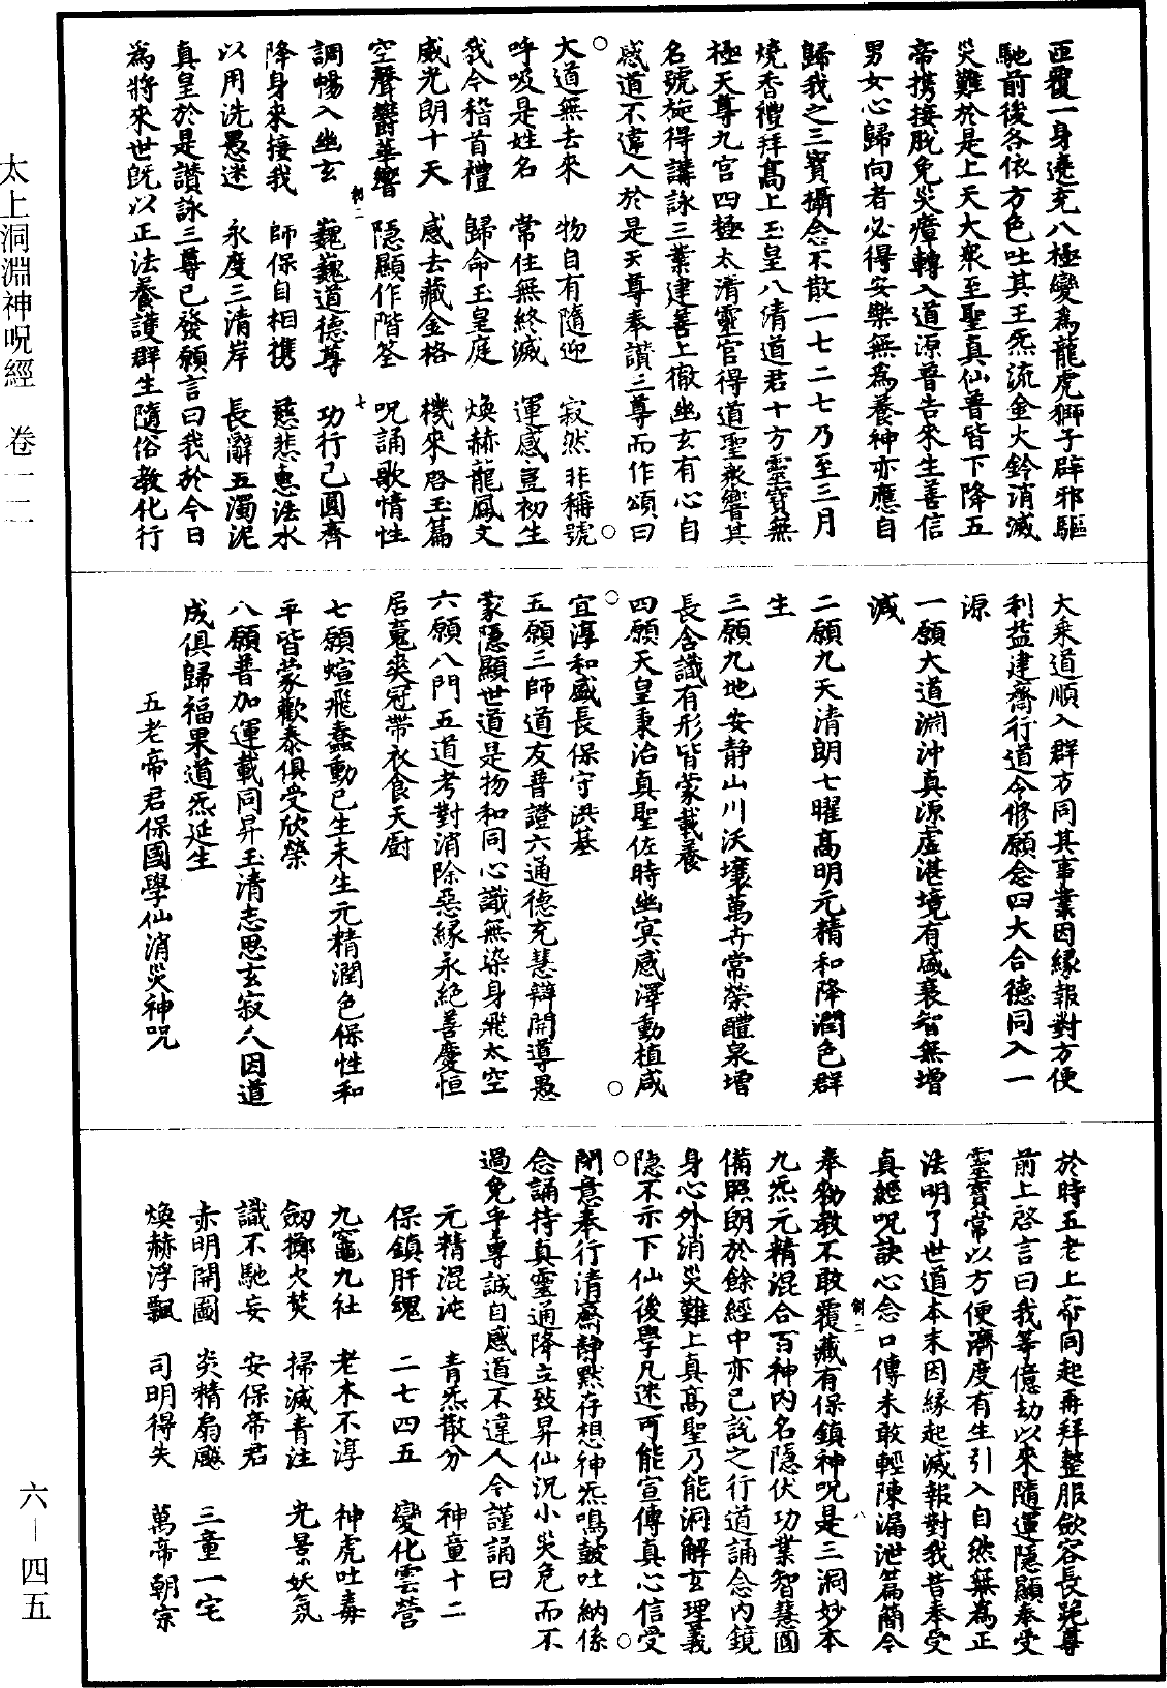 匝覆一身遶充八極變為龍虎獅子辟邪驅
馳前後各依方色吐其王炁流金火鈴消滅
災難於是上天大衆至聖真仙普皆下降五
帝携接脱免災瘴轉入道源普告來生善信
男女心歸向者必得安樂無為養神亦應自
歸我之三寳攝念不散一七二七乃至三月
燒香禮拜髙上玉皇八清道君十方靈寳無
極天尊九宫四極太清靈官得道聖衆響其
名號旋得講詠三業建善上徹幽玄有心自
感道不違人於是天尊奉讚三尊而作頌曰
大道無去來　物自有隨迎　寂然非稱號
呼吸是姓名　常住無終滅　運感豈初生
我今稽首禮　歸命玉皇庭　煥赫龍鳳文
威光朗十天　感去藏金格　機來啓玉篇
空聲鬱華響　隱顯作階筌　呪誦歌情性
調暢入幽玄　巍巍道德尊　功行已圓齊
降身來接我　師保自相携　慈悲惠法水
以用洗愚迷　永度三清岸　長辭五濁泥
真皇於是讚詠三尊已發願言曰我於今日
為將來世既以正法養護群生隨俗教化行
大乘道順入群方同其事業因緣報對方便
利益建齋行道令修願念四大合德同入一
源
一願大道淵沖真源虚湛境有盛衰智無增
減
二願九天清朗七曜髙明元精和降潤色群
生
三願九地安靜山川沃壤萬卉常榮醴泉增
長含識有形皆蒙載養
四願天皇秉治真聖佐時幽冥感澤動植咸
宜淳和盛長保守洪基
五願三師道友普證六通德充慧辯開導愚
蒙隱顯世道是物和同心識無染身飛太空
六願八門五道考對消除惡緣永絶善慶恒
居魂爽冠帶衣食天厨
七願蝖飛蠢動已生未生元精潤色保性和
平皆蒙歡泰俱受欣榮
八願普加運載同昇玉清志思玄寂人因道
成俱歸福果道炁延生
五老帝君保國學仙消災神呪
於時五老上帝同起再拜整服斂容長跪尊
前上啓言曰我等億劫以來隨運隱顯奉受
靈寳常以方便濟度有生引入自然無為正
法明了世道本末因緣起滅報對我昔奉受
真經呪訣心念口傳未敢輕陳漏泄篇簡今
奉勑教不敢覆藏有保鎮神呪是三洞妙本
九炁元精混合百神内名隱伏功業智慧圓
備照朗於餘經中亦已說之行道誦念内鏡
身心外消災難上真髙聖乃能洞解玄理義
隱不示下仙後學凡迷可能宣傳真心信受
閉意奉行清齋静黙存想神炁鳴鼓吐納係
念誦待真靈通降立致昇仙況小災危而不
過免乎專誠自感道不違人今謹誦曰
元精混沌　青炁散分　神童十二
保鎮肝魂　二七四五　變化雲營
九竈九社　老木不淳　神虎吐毒
劒擲火焚　掃滅青注　光景妖氛
識不馳妄　安保帝君
赤明開圖　炎精扇飈　三童一宅
煥赫浮飄　司明得失　萬帝朝宗
太上洞淵神呪經　卷一二
六—四五